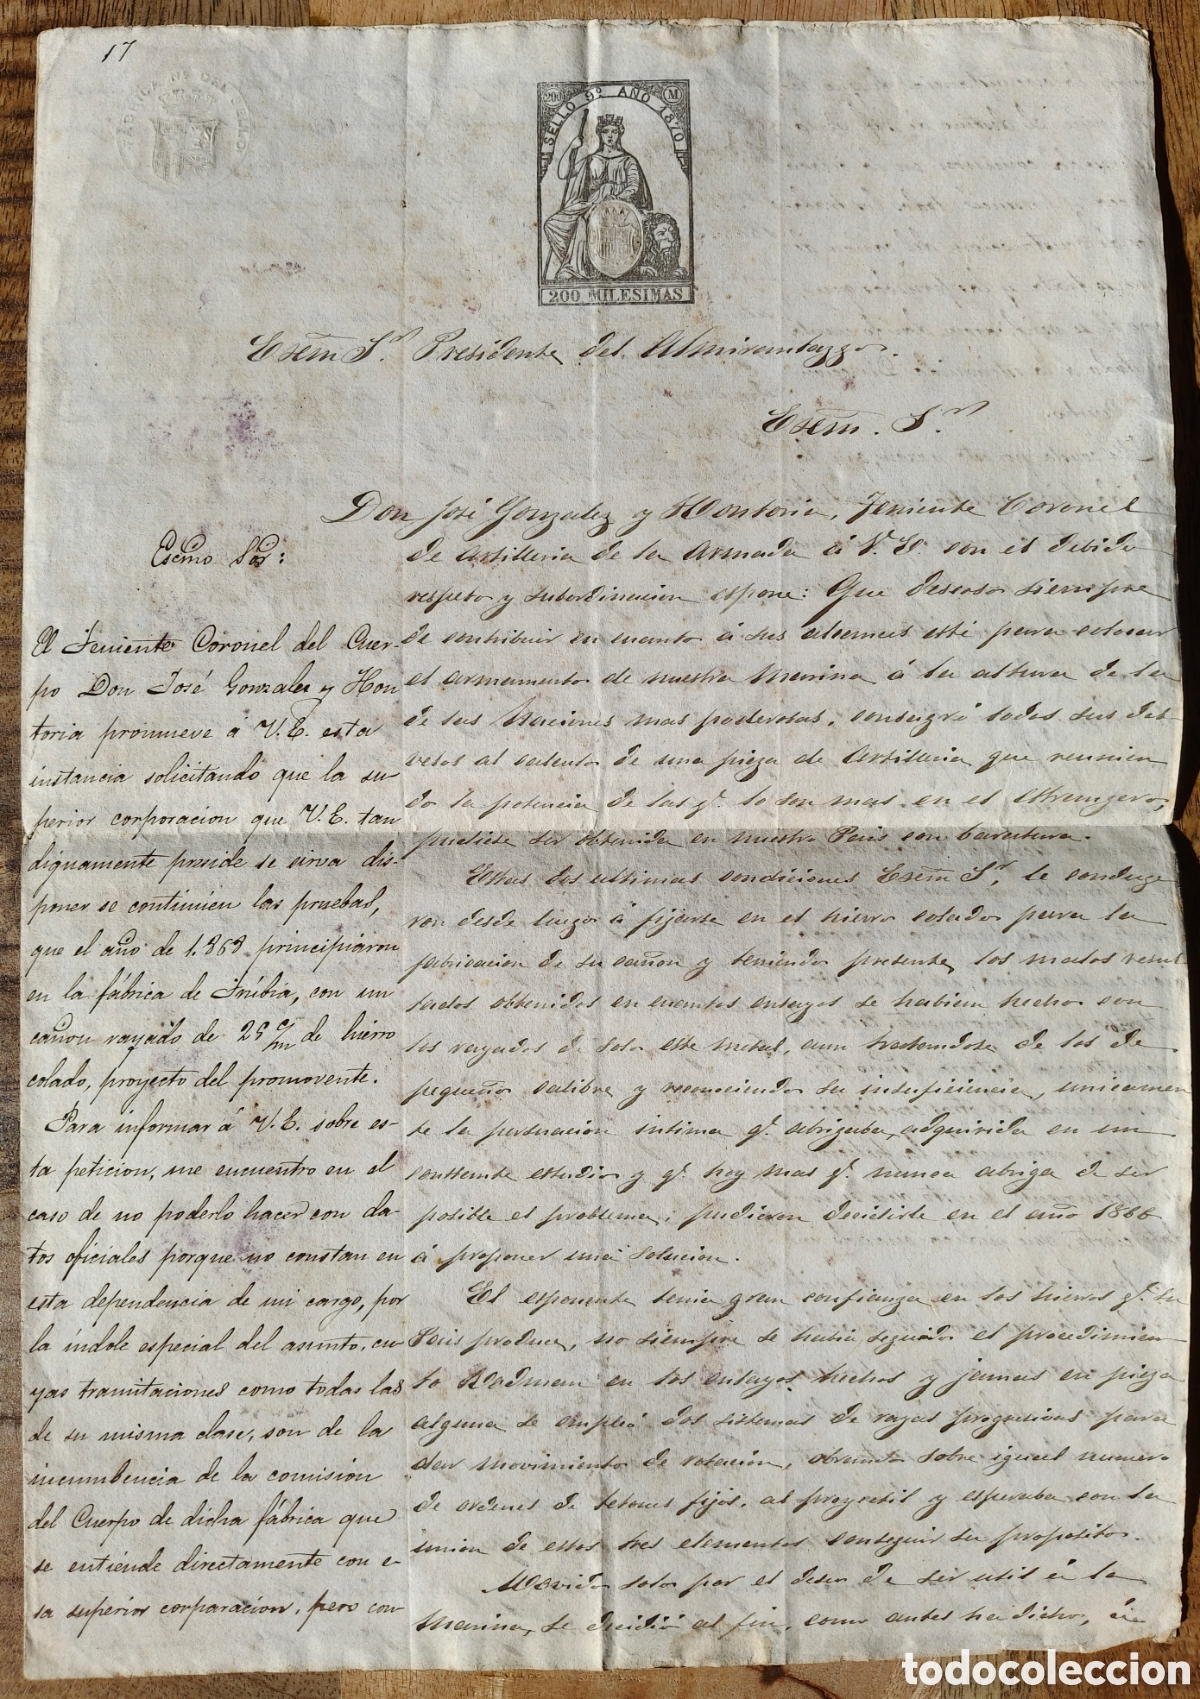 17
SELLO 9º AÑO 1870
200 M
200 MILESIMAS
Esem̃ S.ʳ Presidente del Almirantazgo.
Esem̃. S.ʳ
Don José Gonzalez y Hontoria, Teniente Coronel
de Artilleria de la Armada á V. E. con el debido
respeto y subordinacion espone: Que deseoso siempre
de contribuir en cuanto á sus alcances esté para colocar
el armamento de nuestra Marina á la altura de la
de las Naciones mas poderosas, consagró todos sus des-
velos al calculo de una pieza de Artilleria que reunien
do la potencia de las q.ᵉ lo son mas en el estrangero,
pudiese ser obtenida en nuestro Pais con baratura.
Estas dos ultimas condiciones Esem̃ S.ʳ, le conduge
ron desde luego á fijarse en el hierro colado para la
fabricacion de su cañon y teniendo presente, los malos resul
tados obtenidos en cuantos ensayos se habian hecho con
los rayados de solo este metal, aun tratandose de los de
pequeño calibre y reconociendo su insuficiencia, unicamen
te la persuacion intima q.ᵉ abrigaba, adquirida en un
constante estudio y q.ᵉ hoy mas q.ᵉ nunca abriga de ser
posible el problema, pudieron decidirle en el año 1866
á proponer una solucion.
El esponente tenia gran confianza en los hierros q.ᵉ su
Pais produce, no siempre se habia seguido el procedimien
to Rodman en los ensayos hechos y jamas en pieza
alguna se empleó dos sistemas de rayas progresivas para
dar movimiento de rotacion, obrando sobre igual numero
de ordenes de tetones fijos, al proyectil y esperaba con la
union de estos tres elementos conseguir su proposito.
Movido solo por el deseo de ser util á la
Marina, se decidió al fin, como antes ha dicho, á
Escmo Sor:
El Teniente Coronel del Cuer-
po Don José Gonzalez y Hon
toria promueve á V. E. esta
instancia solicitando que la su-
perior corporacion que V. E. tan
dignamente preside se sirva dis-
poner se continúen las pruebas,
que el año de 1.868 principiaron
en la fábrica de Trúbia, con un
cañon rayado de 25 c/m de hierro
colado, proyecto del promovente.
Para informar á V. E. sobre es-
ta peticion, me encuentro en el
caso de no poderlo hacer con da-
tos oficiales porque no constan en
esta dependencia de mi cargo, por
la índole especial del asunto, cu
yas tramitaciones como todas las
de su misma clase, son de la
incumbencia de la comision
del Cuerpo de dicha fábrica que
se entiende directamente con e-
sa superior corporacion, pero con-
todocoleccion